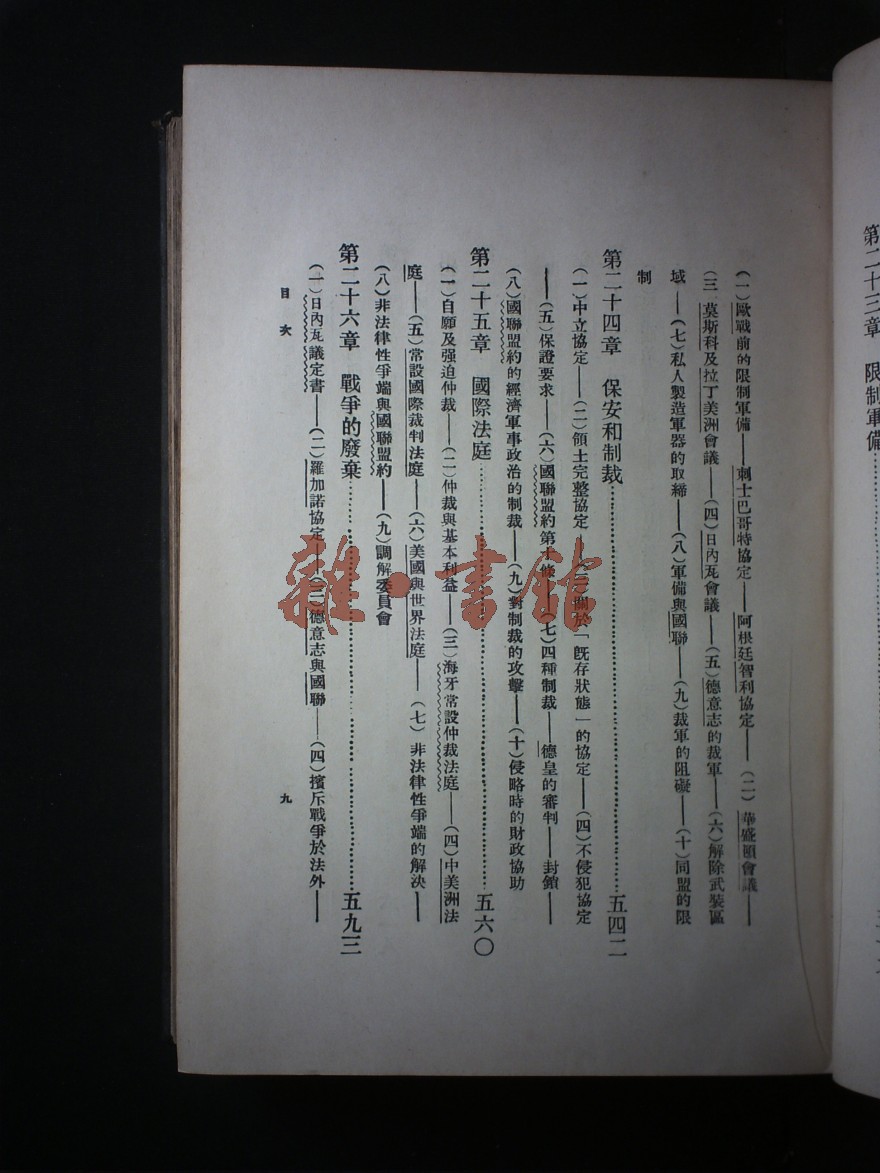 第二十三章　限制軍備
（一）歐戰前的限制軍備——刺士巴哥特協定——阿根廷智利協定——（二）華盛頓會議——
（三）莫斯科及拉丁美洲會議——（四）日內瓦會議——（五）德意志的裁軍——（六）解除武裝區
域——（七）私人製造軍器的取締——（八）軍備與國聯——（九）裁軍的阻礙——（十）同盟的限
制
第二十四章　保安和制裁……五四二
（一）中立協定——（二）領土完整協定——（三）關於「旣存狀態」的協定——（四）不侵犯協定
——（五）保證要求——（六）國聯盟約第十條——（七）四種制裁——德皇的審判——封鎖——
（八）國聯盟約的經濟軍事政治的制裁——（九）對制裁的攻擊——（十）侵略時的財政協助
第二十五章　國際法庭……五六〇
（一）自願及强迫仲裁——（二）仲裁與基本利益——（三）海牙常設仲裁法庭——（四）中美洲法
庭——（五）常設國際裁判法庭——（六）美國與世界法庭——（七）非法律性爭端的解決——
（八）非法律性爭端與國聯盟約——（九）調解委員會
第二十六章　戰爭的廢棄……五九三
（一）日內瓦議定書——（二）羅加諾協定——（三）德意志與國聯——（四）擯斥戰爭於法外——
目次
九
雜·書館